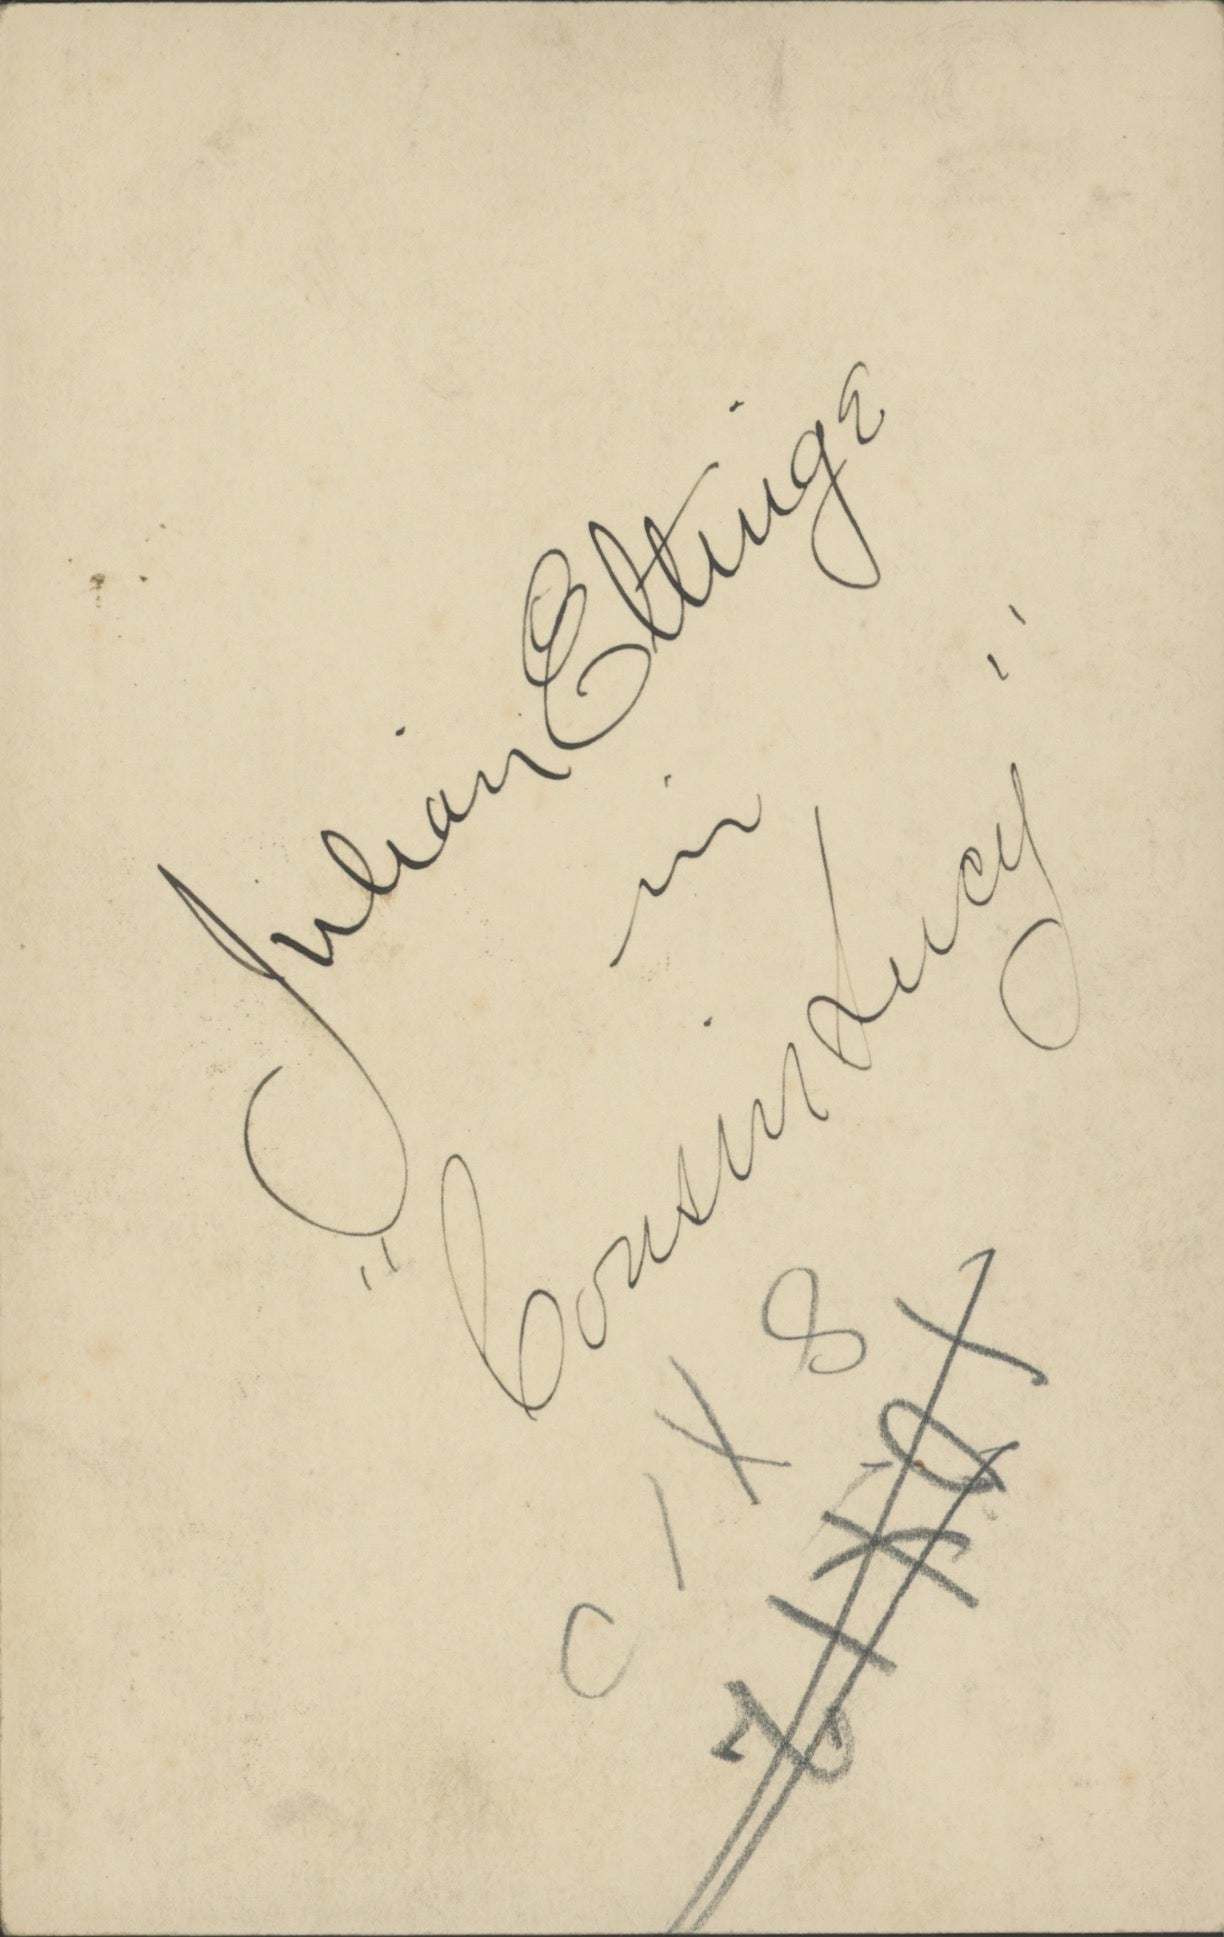 Julian Eltinge
in
"Cousin Lucy"
C 1 X 8